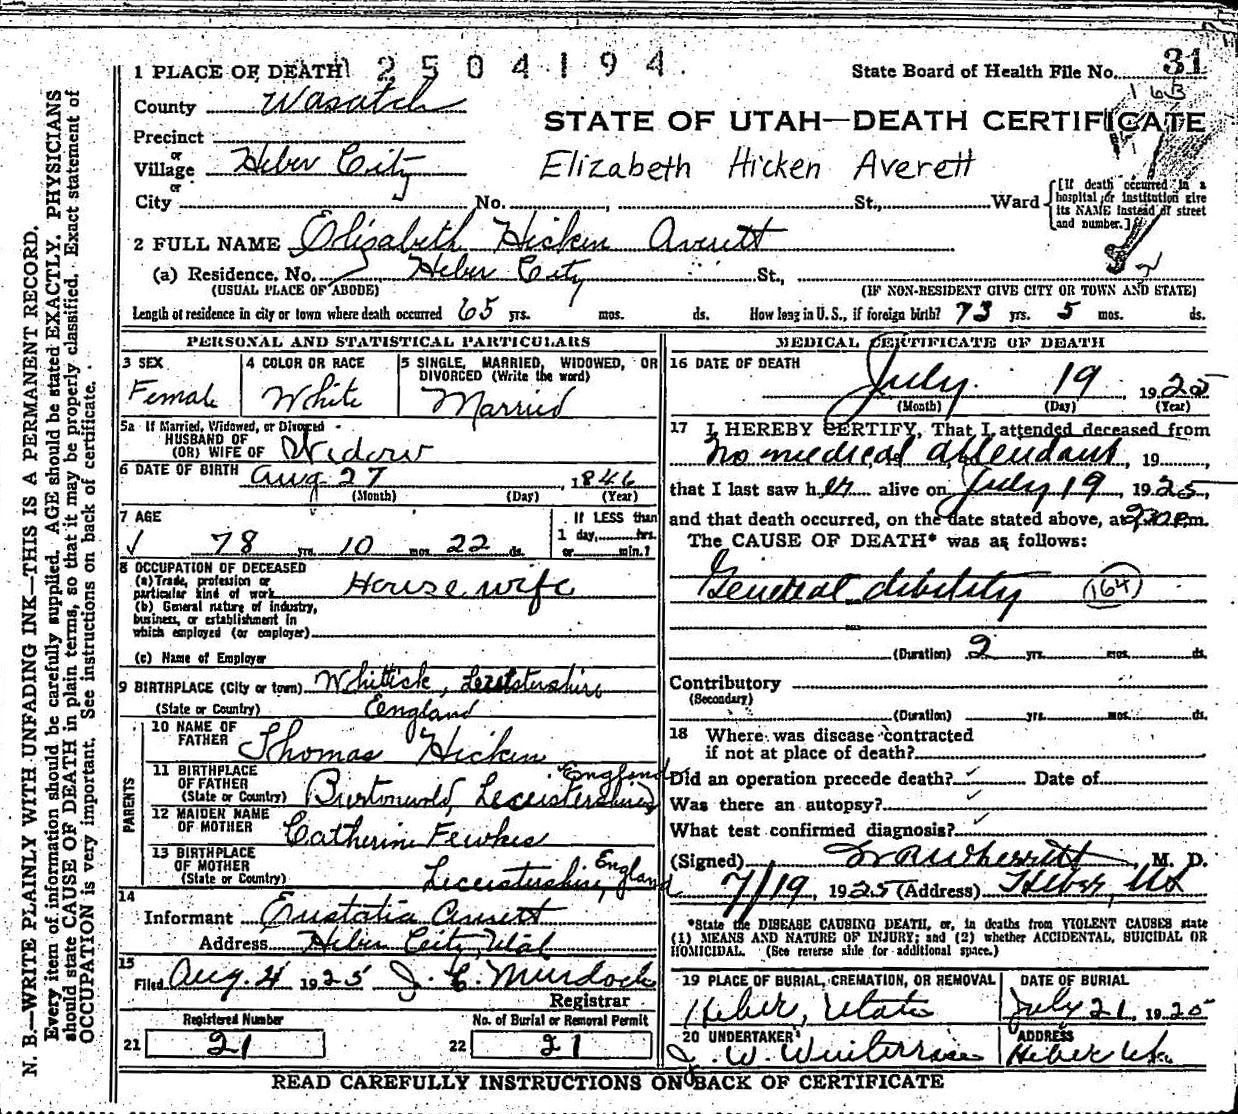 1 PLACE OF DEATH 2504194 State Board of Health File No. 31
County Wasatch
STATE OF UTAH—DEATH CERTIFICATE
Precinct
or
Village Heber City Elizabeth Hicken Averett
or
City No. , St., Ward [If death occurred in a hospital or institution give its NAME instead of street and number.]
2 FULL NAME Elizabeth Hicken Averett
(a) Residence. No. Heber City St.,
(USUAL PLACE OF ABODE) (IF NON-RESIDENT GIVE CITY OR TOWN AND STATE)
Length of residence in city or town where death occurred 65 yrs. mos. ds. How long in U.S., if foreign birth? 73 yrs. 5 mos. ds.
PERSONAL AND STATISTICAL PARTICULARS
3 SEX Female
4 COLOR OR RACE White
5 SINGLE, MARRIED, WIDOWED, OR DIVORCED (Write the word) Married
5a If Married, Widowed, or Divorced
HUSBAND OF
(OR) WIFE OF Widow
6 DATE OF BIRTH Aug 27, 1846
(Month) (Day) (Year)
7 AGE If LESS than
78 yrs. 10 mos. 22 ds. 1 day, hrs.
or min.?
8 OCCUPATION OF DECEASED
(a) Trade, profession or
particular kind of work House wife
(b) General nature of industry,
business, or establishment in
which employed (or employer)
(c) Name of Employer
9 BIRTHPLACE (City or town) Whittick, Leicestershire
(State or Country) England
PARENTS
10 NAME OF
FATHER Thomas Hicken
11 BIRTHPLACE
OF FATHER England
(State or Country) Leicestershire
12 MAIDEN NAME
OF MOTHER Catherine Fewkes
13 BIRTHPLACE
OF MOTHER England
(State or Country) Leicestershire,
14
Informant Averett
Address Heber City, Utah
15
Filed Aug. 4 1925 J. C. Murdock
Registrar
Registered Number No. of Burial or Removal Permit
21 21 22 21
MEDICAL CERTIFICATE OF DEATH
16 DATE OF DEATH
July 19 1925
(Month) (Day) (Year)
17 I HEREBY CERTIFY, That I attended deceased from
no medical attendant, 19 ,
that I last saw her alive on July 19, 1925,
and that death occurred, on the date stated above, at 2:30 P.m.
The CAUSE OF DEATH* was as follows:
General debility (164)
(Duration) 2 yrs. mos. ds.
Contributory
(Secondary)
(Duration) yrs. mos. ds.
18 Where was disease contracted
if not at place of death?
Did an operation precede death? Date of
Was there an autopsy?
What test confirmed diagnosis?
(Signed) Wherritt, M. D.
7/19, 1925 (Address) Heber, Ut
*State the DISEASE CAUSING DEATH, or, in deaths from VIOLENT CAUSES state
(1) MEANS AND NATURE OF INJURY; and (2) whether ACCIDENTAL, SUICIDAL OR
HOMICIDAL. (See reverse side for additional space.)
19 PLACE OF BURIAL, CREMATION, OR REMOVAL DATE OF BURIAL
Heber, Utah July 21, 1925
20 UNDERTAKER ADDRESS
J. W. Winterrose Heber Ut.
READ CAREFULLY INSTRUCTIONS ON BACK OF CERTIFICATE
N. B.—WRITE PLAINLY WITH UNFADING INK—THIS IS A PERMANENT RECORD.
Every item of information should be carefully supplied. AGE should be stated EXACTLY. PHYSICIANS
should state CAUSE OF DEATH in plain terms, so that it may be properly classified. Exact statement of
OCCUPATION is very important. See instructions on back of certificate.